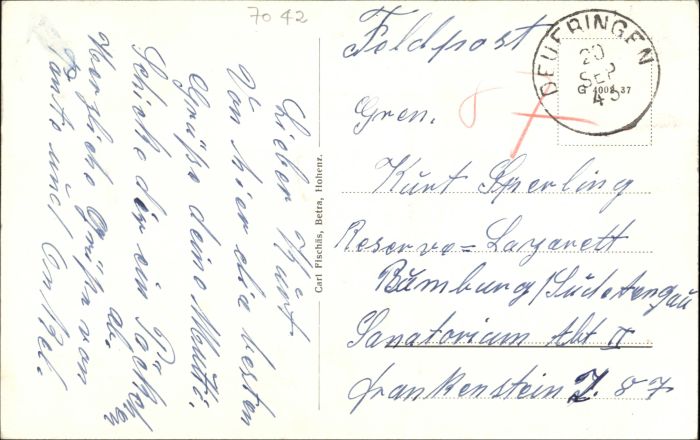 7042
Lieber Kurt
Von hier die besten
Grüße deine Mutti.
Schicke dir ein Päckchen
ab.
Herzliche Grüße von
Tante und Onkel.
Carl Fischäs, Betra, Hohenz.
Feldpost
DEUFRINGEN
20
SEP
43
G 4002 37
8
Gren.
Kurt Sperling
Reserve=Lazarett
Bömburg/Sudetengau
Sanatorium Abt II
Frankenstein Z. 87